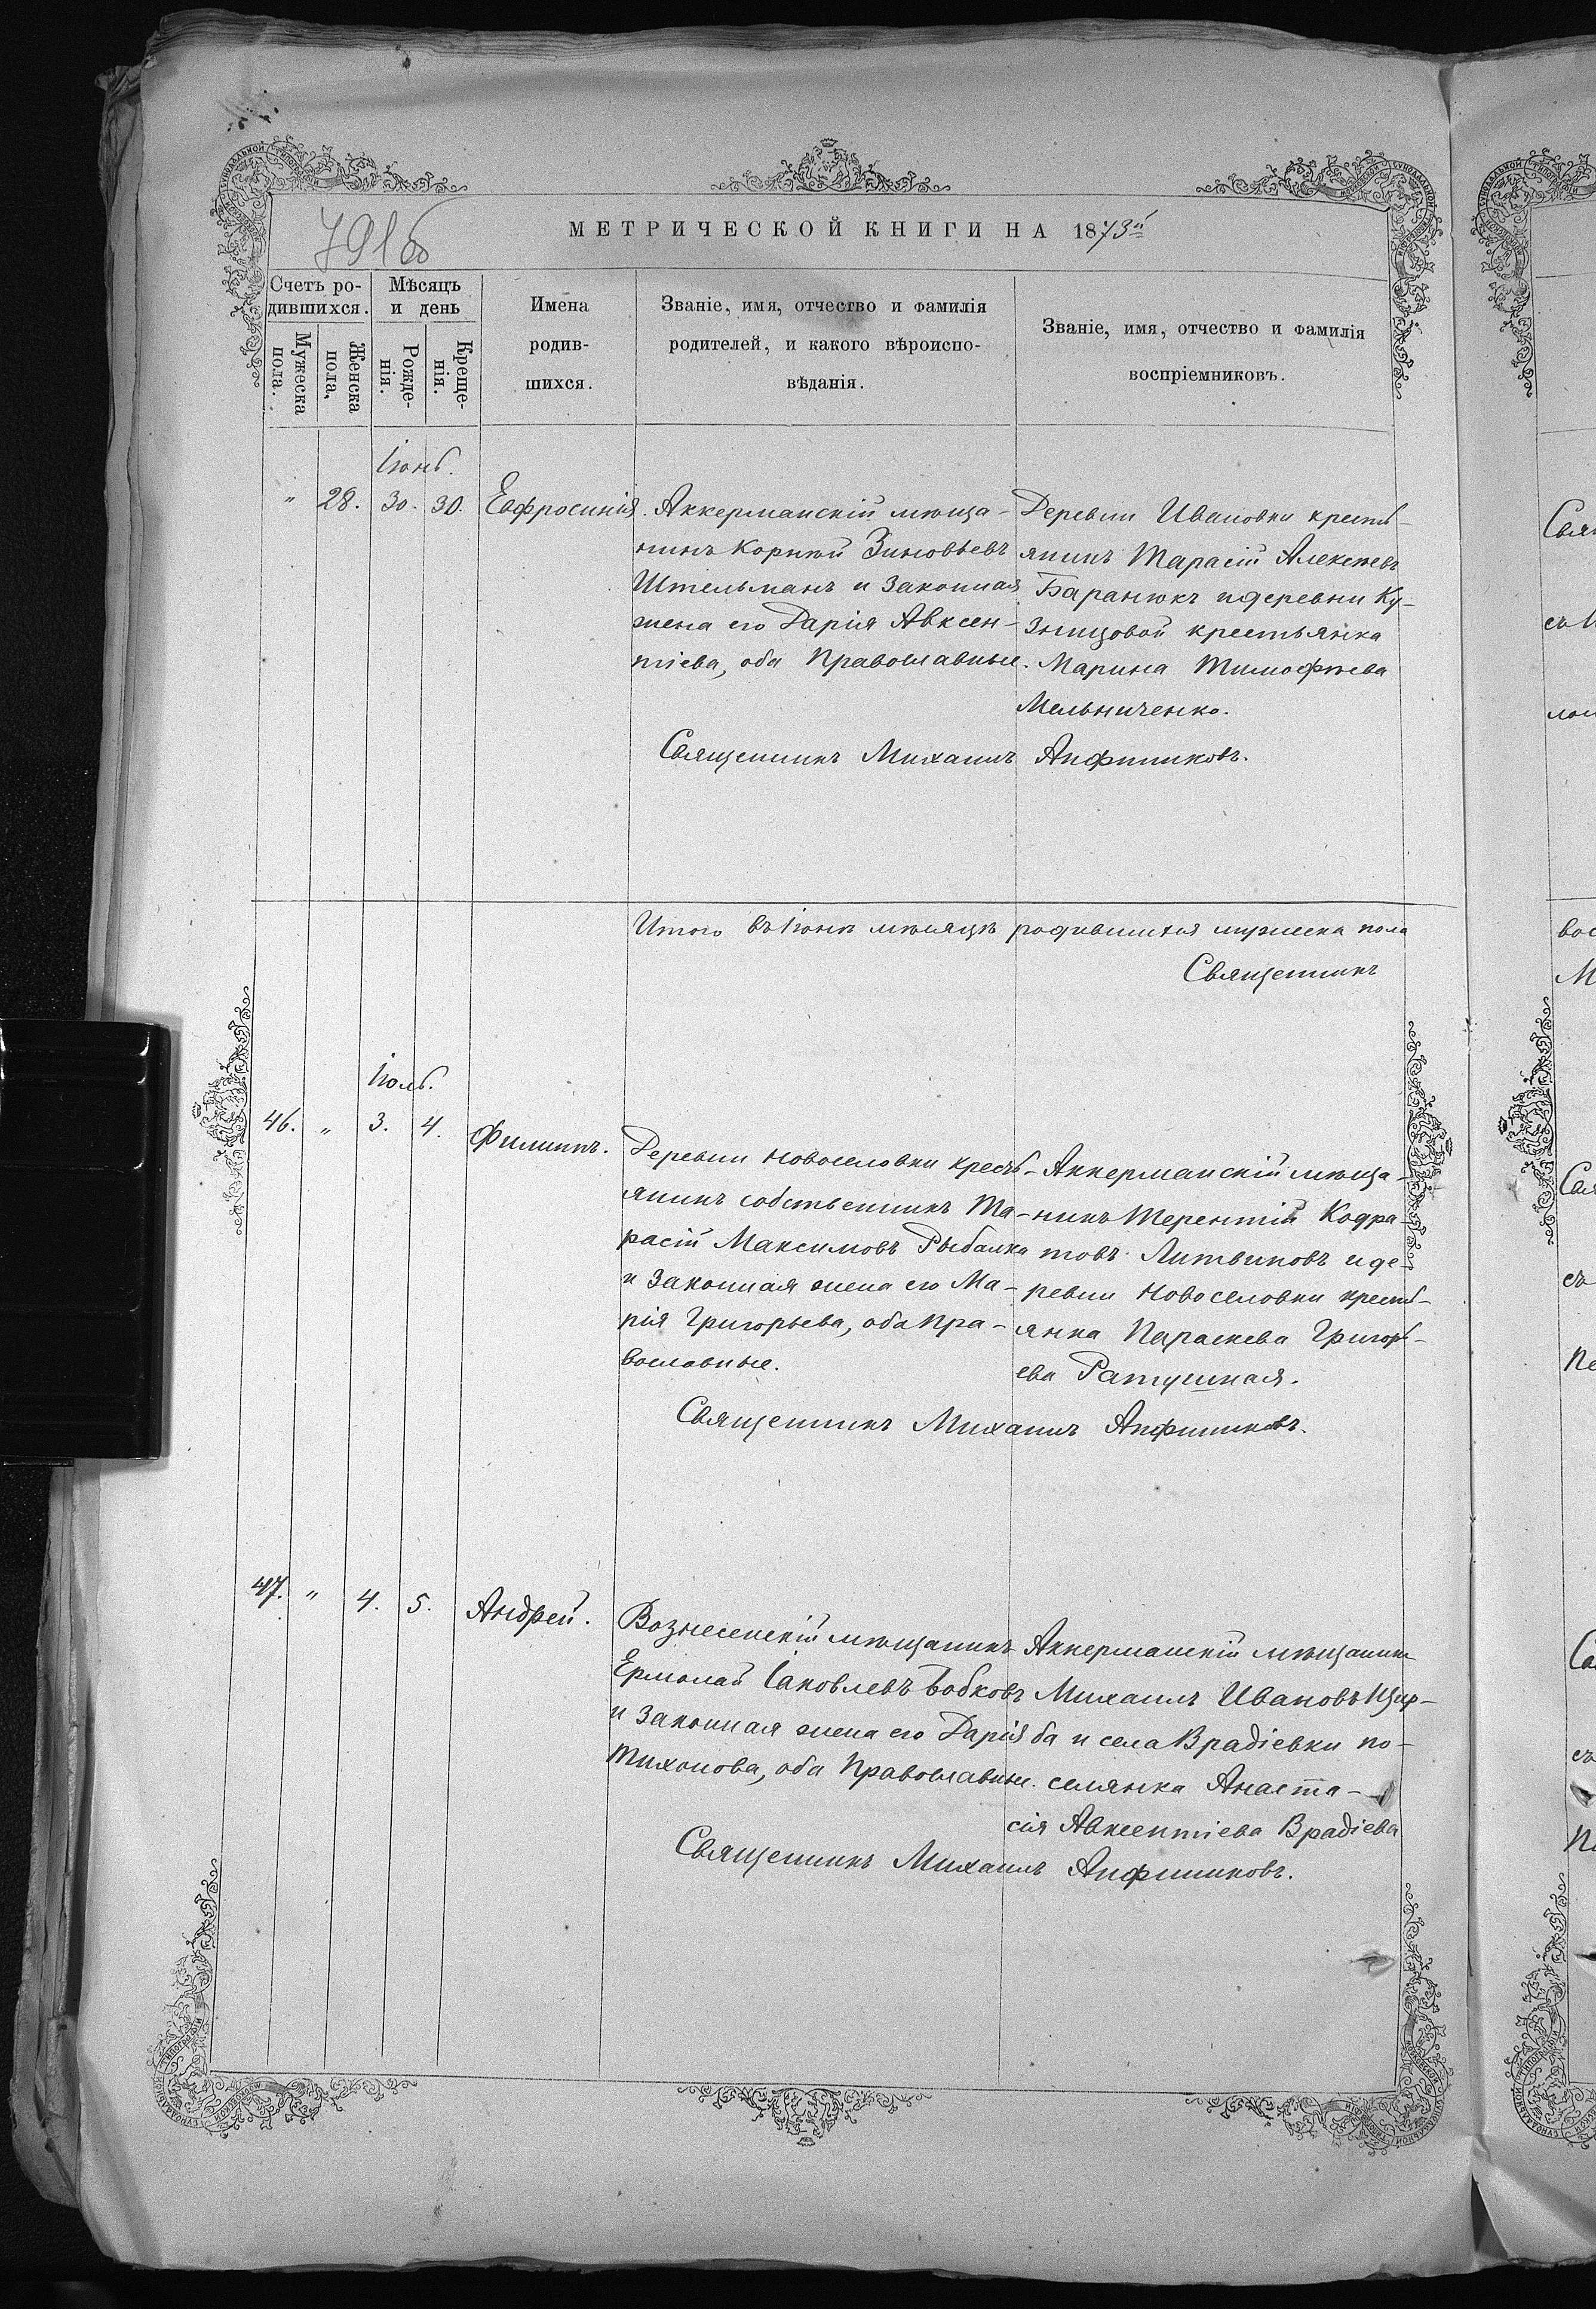 791 об
МЕТРИЧЕСКОЙ КНИГИ НА 1873й
Счетъ ро-
дившихся.
Мужеска
пола.
Женска
пола,
Мѣсяцъ
и день
Рожде-
нія.
Креще-
нія.
Имена
родив-
шихся.
Званіе, имя, отчество и фамилія
родителей, и какого вѣроиспо-
вѣданія.
Званіе, имя, отчество и фамилія
воспріемниковъ.
Іюнь.
" 28. 30. 30. Евфросинія.
Аккерманскій мѣща-
нинъ Корнѣй Зиновьевъ
Штельманъ и законная
жена его Дарія Авксен-
тіева, оба Православные.
Деревни Ивановки кресть-
янинъ Тарасій Алексѣевъ
Баранюкъ и деревни Ку-
знецовой крестьянка
Марина Тимофѣева
Мельниченко.
Священникъ Михаилъ Анфиников.
Итого въ Іюнѣ мѣсяцѣ родившихся мужеска пола
Священникъ
Іюль.
46. " 3. 4. Филиппъ.
Деревни Новоселовки кресть-
янинъ собственникъ Та-
расій Максимовъ Рыбалка
и законная жена его Ма-
рія Григорьева, оба пра-
вославные.
Аккерманскій мѣща-
нинъ Терентій Кодра-
товъ Литвиновъ и де-
ревни Новоселовки кресть-
янка Параскева Григорь-
ева Ратушная.
Священникъ Михаилъ
47. " 4. 5. Андрей.
Вознесенскій мѣщанинъ
Ермолай Іаковлевъ Бобковъ
и законная жена его Дарія
Тихонова, оба Православные.
Аккерманскій мѣщанинъ
Михаилъ Ивановъ Щер-
ба и села Врадіевки по-
селянка Анаста-
сія Авксентіева Врадіева
Священникъ Михаилъ